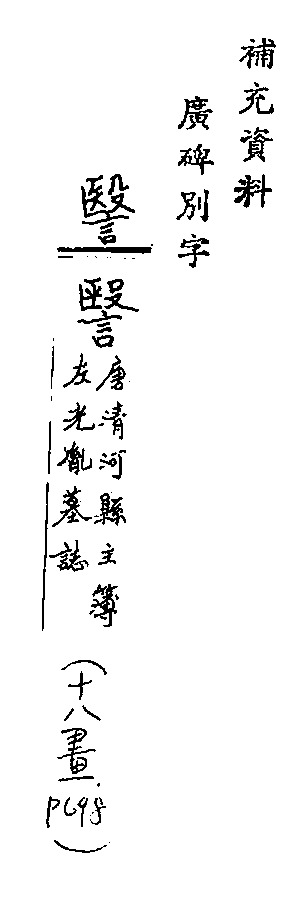 補充資料
廣碑別字
醫
唐清河縣主簿
左光胤墓誌
（十八畫．P698）